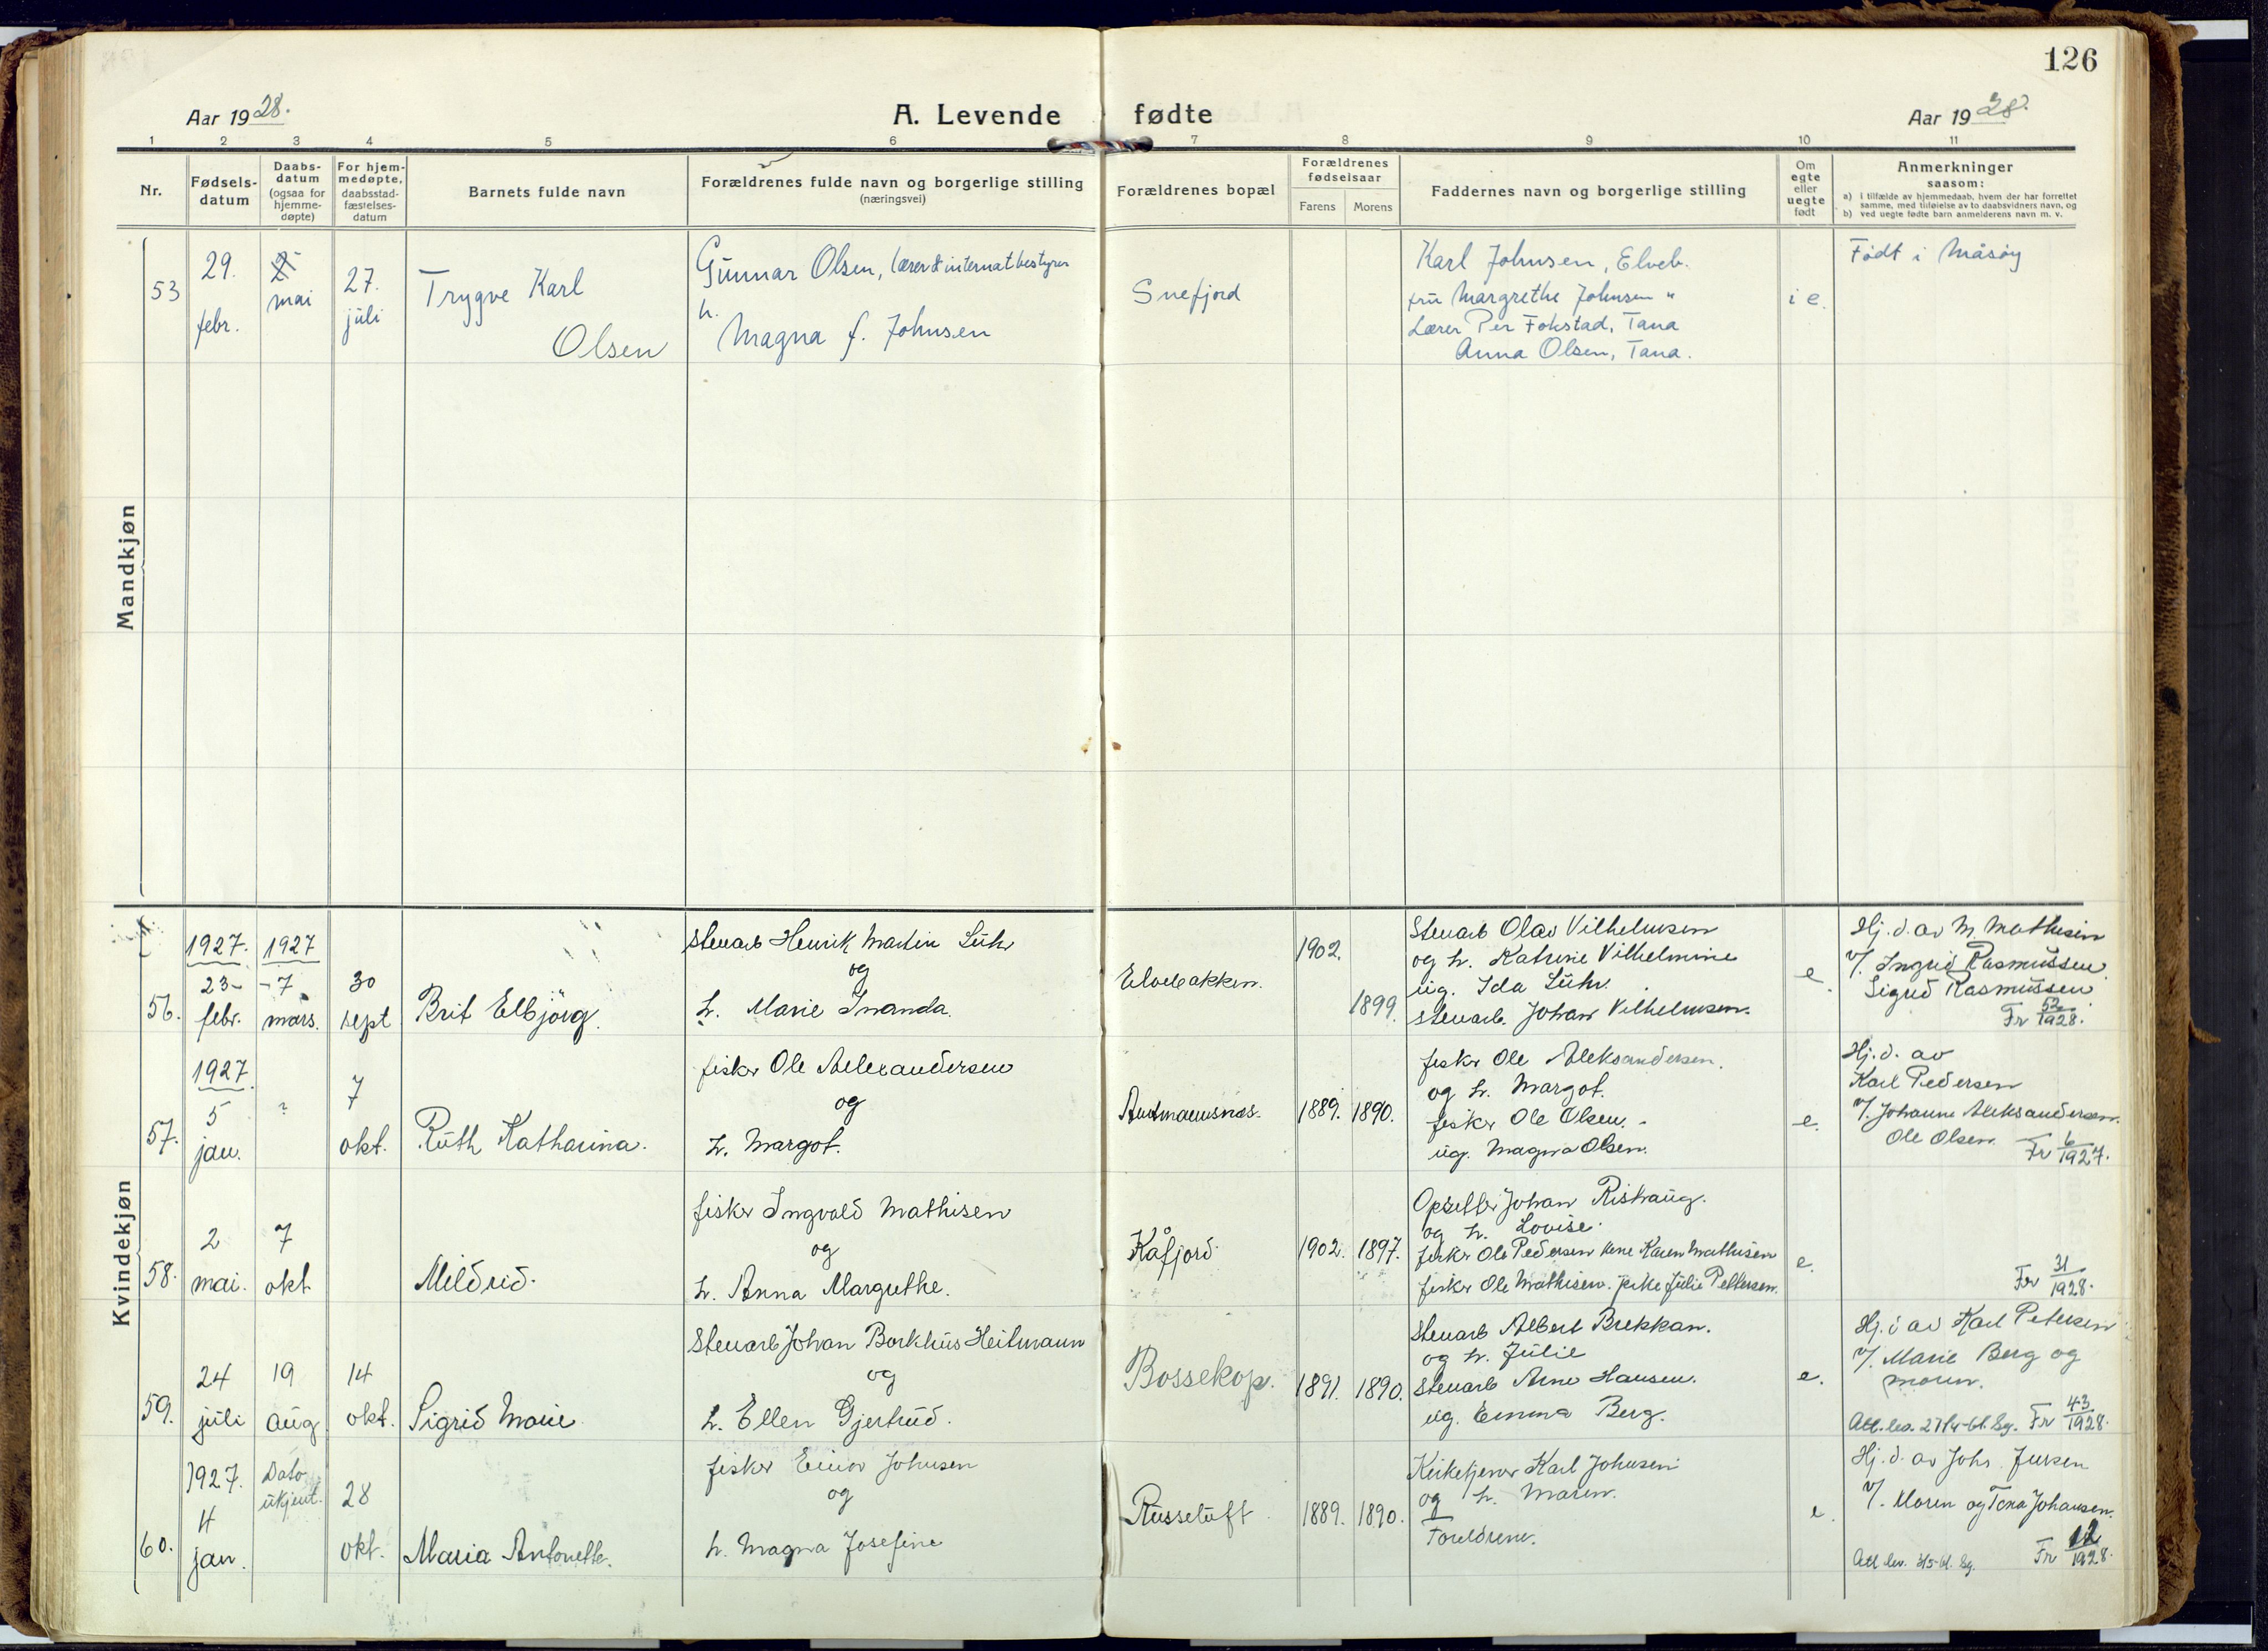 126
Aar 1928.
A. Levende fødte
Aar 1928.
1 2 3 4 5 6 7 8 9 10 11
Nr.
Fødsels-
datum
Daabs-
datum
(ogsaa for
hjemme-
døpte)
For hjem-
medøpte,
daabsstad-
fæstelses-
datum
Barnets fulde navn
Forældrenes fulde navn og borgerlige stilling
(næringsvei)
Forældrenes bopæl
Forældrenes
fødselsaar
Farens Morens
Faddernes navn og borgerlige stilling
Om
egte
eller
uegte
født
Anmerkninger
saasom:
a) i tilfælde av hjemmedaab, hvem der har forrettet
samme, med tilføielse av to daabsvidners navn, og
b) ved uegte fødte barn anmelderens navn m. v.
Mandkjøn
53
29.
febr.
2
mai
27.
juli
Trygve Karl
Olsen
Gunnar Olsen, lærer & internatbestyrer
h.
Magna f. Johnsen
Snefjord
Karl Johnsen, Elveb.
fru Margrethe Johnsen "
Lærer Per Fokstad, Tana
Anna Olsen, Tana.
i e.
Født i Måsøy
Kvindekjøn
56.
1927.
23-
febr.
1927
-7
mars.
30
sept
Brit Elbjörg.
Stenarb Henrik Martin Lühr
og
h. Marie Inanda.
Elvebakken.
1902.
1899
Stenarb Olav Vilhelmsen
og h. Katrine Vilhelmine
ug. Ida Lühr.
stenarb. Johan Vilhelmsen.
e.
Hj. d. av M. Mathisen
V. Ingrid Rasmussen
Sigrid Rasmussen
Fr 52/1928.
57.
1927.
5
jan.
?
7
okt.
Ruth Katharina.
fisker Ole Alexandersen
og
h. Margot.
Audmannsnes.
1889. 1890.
fisker Ole Aleksandersen.
og h. Margot.
fisker Ole Olsen.
ug. Magna Olsen.
e.
Hj. d. av
Karl Pedersen
V. Johanne Aleksandersen.
Ole Olsen.
Fr 6/1927.
58.
2
mai.
7
okt
Mildrid.
fisker Ingvald Mathisen
og
h. Anna Margrethe.
Kåfjord
1902. 1897.
Opsetter Johan Rishaug.
og h. Lovise.
fisker Ole Pedersen kone Karen Mathisen
fisker Ole Mathisen. pike Julie Pettersen.
e.
Fr 31/1928.
59.
24
juli
19
aug
14
okt.
Sigrid Marie
Stenarb Johan Borkhus Heitmann
og
h. Ellen Gjertrud.
Bossekop.
1891. 1890.
Stenarb Albert Brekkan.
og h. Julie
Stenarb Arne Hansen.
ug. Emma Berg.
e.
Hj. d av Karl Petersen
V. Marie Berg og
moren.
Fr 43/1928.
60.
1927.
4
jan.
Dato
ukjent.
28
okt.
Maria Antonette.
fisker Einar Johnsen
og
h. Magna Josefine
Russeluft.
1889. 1890.
Kirketjener Karl Johnsen
og h. Maren.
Foreldrene.
e.
Hj. d. av Johs Jursen
V. Maren og Tora Johansen.
Fr 12/1928.